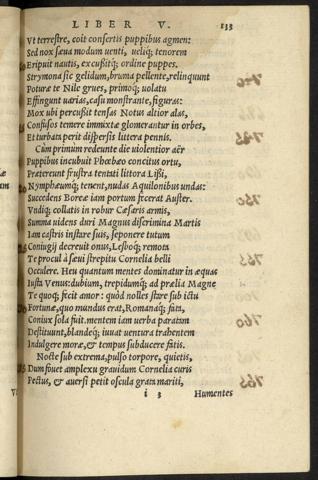 LIBER V.
133
Vt terrestre, coit consertis puppibus agmen:
Sed nox sæua modum uenti, ueliq; tenorem
Eripuit nautis, excußitq; ordine puppes.
Strymona sic gelidum, bruma pellente, relinquunt
Poturæ te Nile grues, primoq; uolatu
Effingunt uarias, casu monstrante, figuras:
Mox ubi percußit tensas Notus altior alas,
Confusos temere immixtæ glomerantur in orbes,
Et turbata perit dispersis littera pennis.
Cùm primum redeunte die uiolentior aër
Puppibus incubuit Phœbæo concitus ortu,
Prætereunt frustra tentati littora Lißi,
Nymphæumq; tenent, nudas Aquilonibus undas:
Succedens Boreæ iam portum fecerat Auster.
Vndiq; collatis in robur Cæsaris armis,
Summa uidens duri Magnus discrimina Martis
Iam castris instare suis, seponere tutum
Coniugij decreuit onus, Lesboq; remota
Te procul à sæui strepitu Cornelia belli
Occulere. Heu quantum mentes dominatur in æquas
Iusta Venus: dubium, trepidumq; ad prælia Magne
Te quoq; fecit amor: quòd nolles stare sub ictu
Fortunæ, quo mundus erat, Romanaq; fata,
Coniux sola fuit. mentem iam uerba paratam
Destituunt, blandæq; iuuat uentura trahentem
Indulgere moræ, & tempus subducere fatis.
Nocte sub extrema, pulso torpore, quietis,
Dum fouet amplexu grauidum Cornelia curis
Pectus, & auersi petit oscula grata mariti,
i 3 Humentes